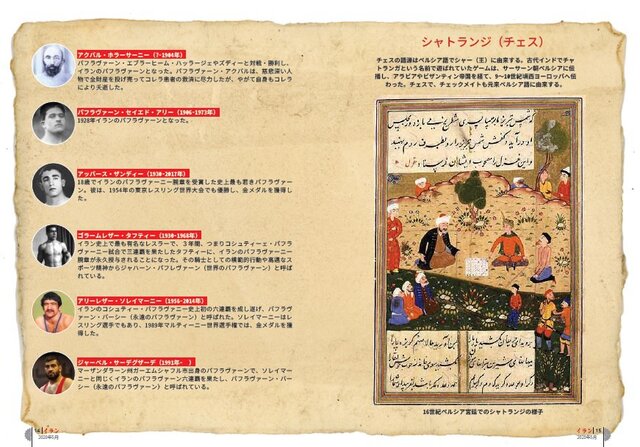 アクバル・ホラーサーニー（?-1904年）
パフラヴァーン・エブラーヒーム・ハッラージェヤズディーと対戦・勝利し、
イランのパフラヴァーンとなった。パフラヴァーン・アクバルは、慈悲深い人
物で全財産を投げ売ってコレラ患者の救済に尽力したが、やがて自身もコレラ
により夭逝した。
パフラヴァーン・セイエド・アリー（1906-1973年）
1928年イランのパフラヴァーンとなった。
アッバース・ザンディー（1930-2017年）
18歳でイランのパフラヴァーニー腕章を受賞した史上最も若きパフラヴァー
ン。彼は、1954年の東京レスリング世界大会でも優勝し、金メダルを獲得し
た。
ゴラームレザー・タフティー（1930-1968年）
イラン史上で最も有名なレスラーで、3年間、つまりコシュティーエ・パフラ
ヴァーニー試合で三連覇を果たしたタフティーに、イランのパフラヴァーニー
腕章が永久授与されることになった。その騎士としての模範的行動や高邁なス
ポーツ精神からジャハーン・パフレヴァーン（世界のパフラヴァーン）と呼ば
れている。
アリーレザー・ソレイマーニー（1956-2014年）
イランのコシュティー・パフラヴァーニー史上初の六連覇を成し遂げ、パフラヴ
ァーン・バーシー（永遠のパフラヴァーン）と呼ばれた。ソレイマーニーはレ
スリング選手でもあり、1989年マルティーニー世界選手権では、金メダルを獲
得した。
ジャーベル・サーデグザーデ（1991年- ）
マーザンダラーン州ガーエムシャフル市出身のパフラヴァーンで、ソレイマー
ニーと同じくイランのパフラヴァーン六連覇を果たし、パフラヴァーン・バー
シー（永遠のパフラヴァーン）と呼ばれている。
シャトランジ（チェス）
チェスの語源はペルシア語でシャー（王）に由来する。古代インドでチャ
トランガという名前で遊ばれていたゲームは、サーサーン朝ペルシアに伝
播し、アラビアやビザンティン帝国を経て、9〜10世紀頃西ヨーロッパへ伝
わった。チェスで、チェックメイトも元来ペルシア語に由来する。
16世紀ペルシア宮廷でのシャトランジの様子
14 イラン
2020年5月
イラン 15
2020年5月